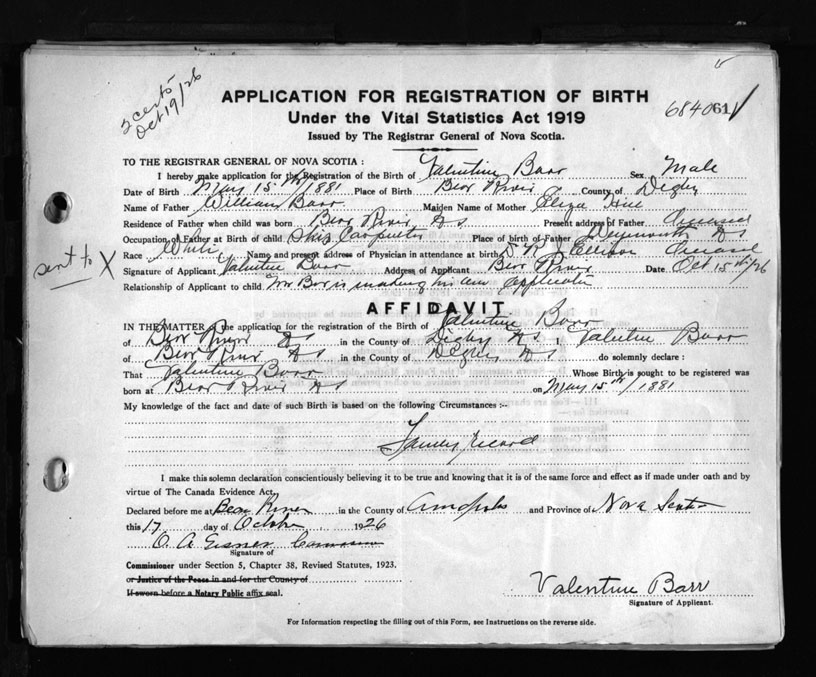 2 certs
Oct 19/26
APPLICATION FOR REGISTRATION OF BIRTH
Under the Vital Statistics Act 1919
Issued by The Registrar General of Nova Scotia.
684061
TO THE REGISTRAR GENERAL OF NOVA SCOTIA :
I hereby make application for the Registration of the Birth of Valentine Barr Sex Male
Date of Birth May 15th/1881 Place of Birth Bear River County of Digby
Name of Father William Barr Maiden Name of Mother Eliza
Residence of Father when child was born Bear River N S Present address of Father Deceased
Occupation of Father at Birth of child Ship Carpenter Place of birth of Father Weymouth N S
Race White Name and present address of Physician in attendance at birth Deceased
sent to X
Signature of Applicant Valentine Barr Address of Applicant Bear River Date Oct 15th/26
Relationship of Applicant to child Mr Barr is making his own application
AFFIDAVIT
IN THE MATTER of the application for the registration of the Birth of Valentine Barr
of Bear River N S in the County of Digby N S I, Valentine Barr
of Bear River N S in the County of Digby N S do solemnly declare :
That Valentine Barr Whose Birth is sought to be registered was
born at Bear River N S on May 15th/1881
My knowledge of the fact and date of such Birth is based on the following Circumstances :-
Family record
I make this solemn declaration conscientiously believing it to be true and knowing that it is of the same force and effect as if made under oath and by
virtue of The Canada Evidence Act.
Declared before me at Bear River in the County of Annapolis and Province of Nova Scotia
this 17 day of October 1926
Signature of
Commissioner under Section 5, Chapter 38, Revised Statutes, 1923.
or Justice of the Peace in and for the County of
If sworn before a Notary Public affix seal.
Valentine Barr
Signature of Applicant.
For Information respecting the filling out of this Form, see Instructions on the reverse side.